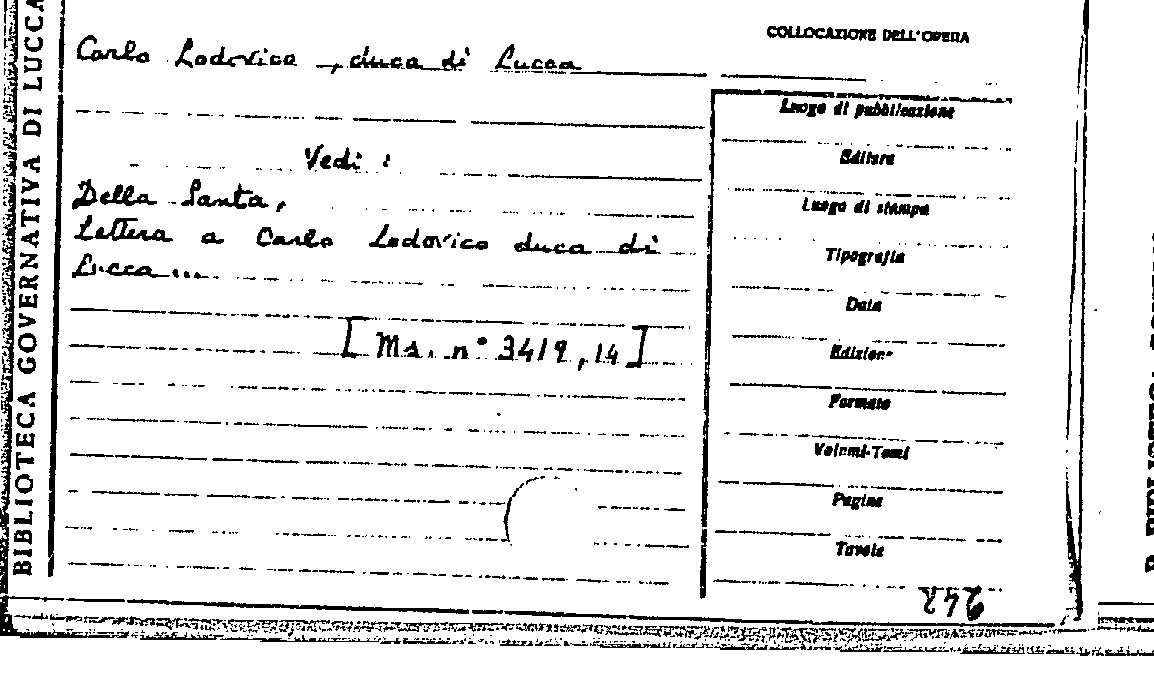 BIBLIOTECA GOVERNATIVA DI LUCCA
COLLOCAZIONE DELL'OPERA
Carlo Lodovico, duca di Lucca
Vedi :
Della Santa,
Lettera a Carlo Lodovico duca di
Lucca...
[ Ms. n° 3419, 14 ]
Luogo di pubblicazione
Editore
Luogo di stampa
Tipografia
Data
Edizione
Formato
Volumi-Tomi
Pagine
Tavole